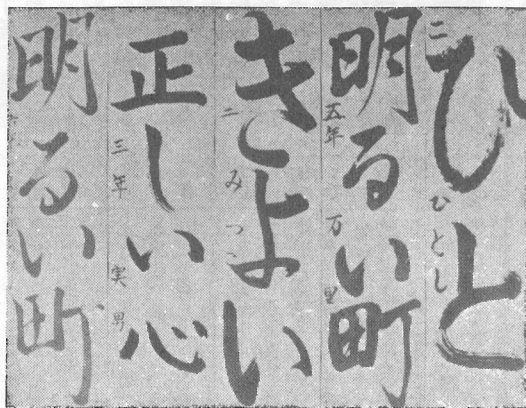 ひと
二 ひとし
明るい町
五年 万里
きよい
二 みつこ
正しい心
三年 実男
明るい町